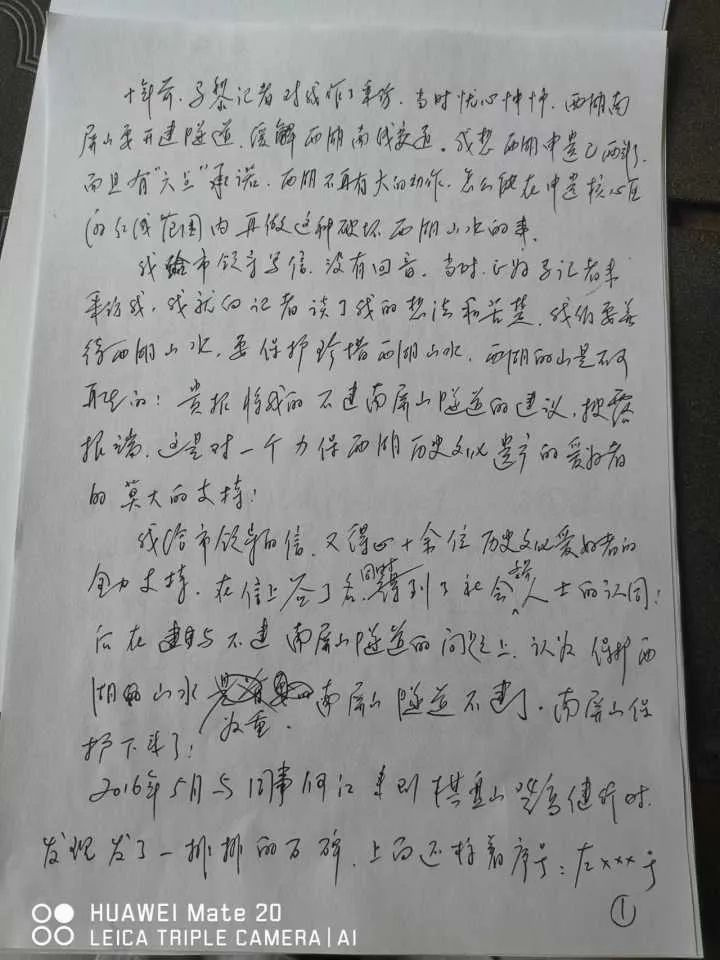 十年前,子黎记者对我作了采访,当时忧心忡忡,西湖南
屏山要开建隧道,缓解西湖南线交通。我想西湖申遗已两年,
而且有“六个”承诺,西湖不再有大的动作,怎么能在申遗核心区
的红线范围内再做这种破坏西湖山水的事。
我给市领导写信,没有回音。当时,正好子记者来
采访我,我就向记者谈了我的想法和苦楚,我们要善
待西湖山水,要保护珍惜西湖山水,西湖的山是不可
再生的!贵报将我的不建南屏山隧道的建议,披露
报端,这是对一个力保西湖历史文化遗产的爱好者
的莫大的支持!
我给市领导的信,又得心十余位历史文化爱好者的
全力支持,在信上签了名,同时得到了社会各人士的认同!
后在建与不建南屏山隧道的问题上,认为保护西
湖的山水为重,南屏山隧道不建了,南屏山保
护下来了!
2016年5月与同事何江来到棋盘山登高健行时,
发现发了一排排的石碑,上面还标着序号:左×××号
①
HUAWEI Mate 20
LEICA TRIPLE CAMERA | AI